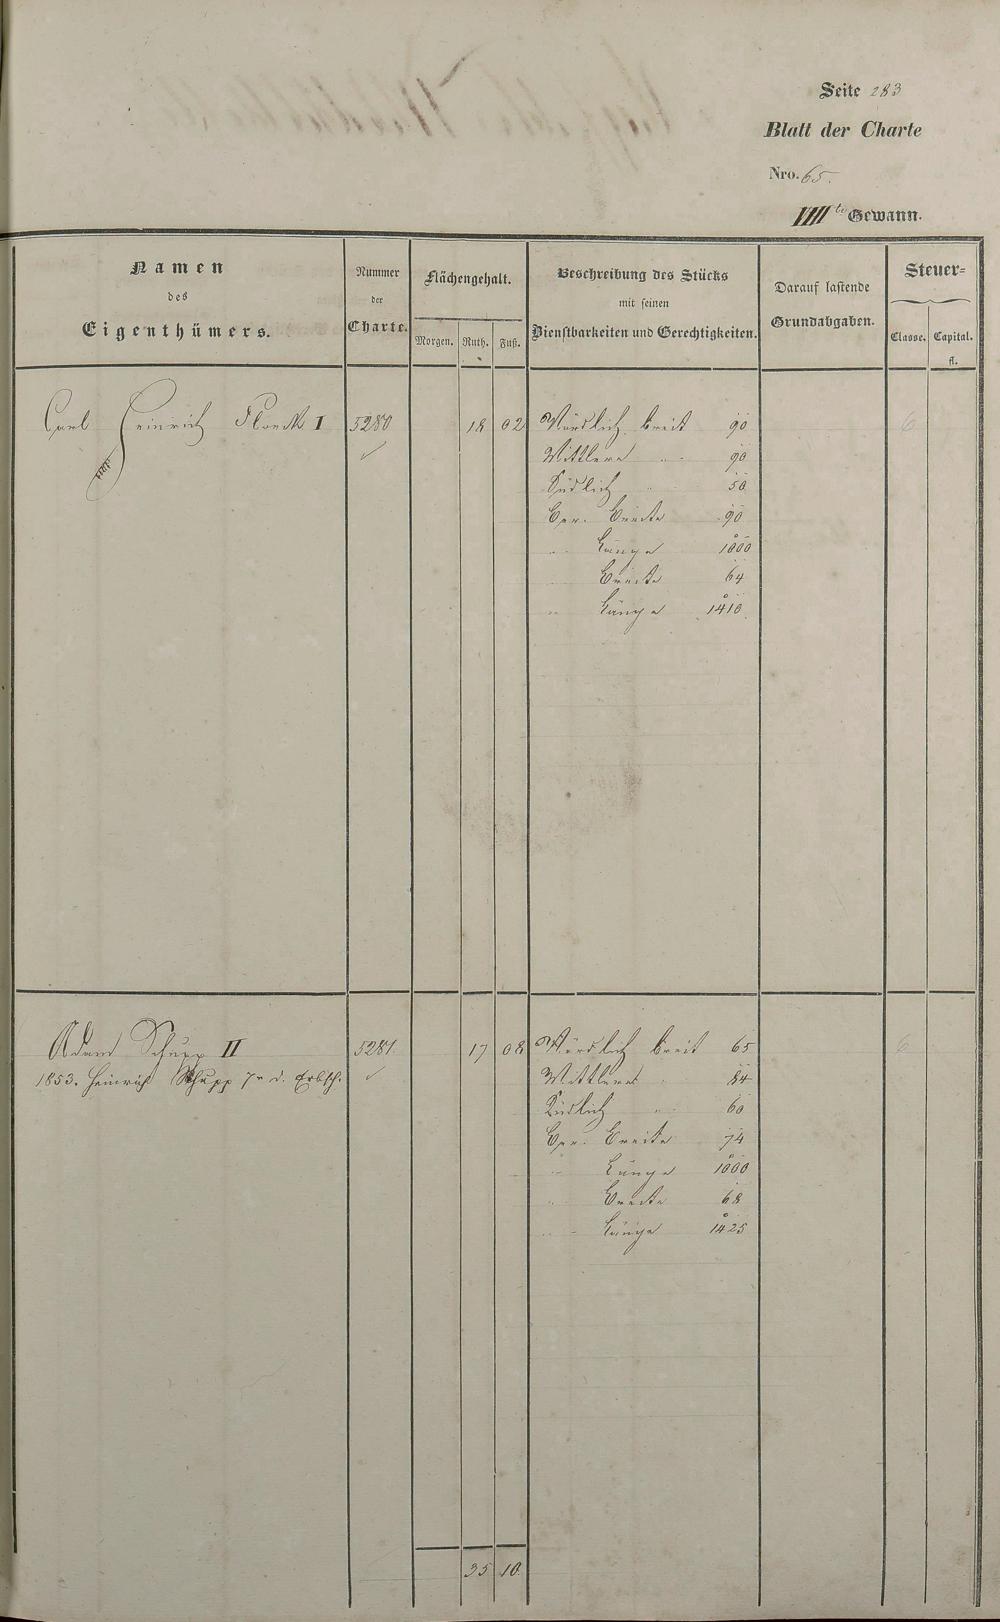 Seite 283
Blatt der Charte
Nro. 65.
VIII te Gewann.
Namen
des
Eigenthümers.
Nummer
der
Charte.
Flächengehalt.
Morgen. Ruth. Fuß.
Beschreibung des Stücks
mit seinen
Dienstbarkeiten und Gerechtigkeiten.
Darauf lastende
Grundabgaben.
Steuer=
Classe. Capital.
fl.
Carl Heinrich Floeck I 5280 18 02 Nördlich breit 90 6
Mittlere " 90
Südlich " 50
Ber. Breite 90
" Länge 1000
Breite 64
" Länge 1410
Adam Schupp II 5281. 17 08 Nördlich breit 65 6
1853. Heinrich Schupp 7r d. Erbsch. Mittlere " 84
Südlich " 60
Ber. Breite 74
" Länge 1000
" Breite 68
" Länge 1425
35 10.